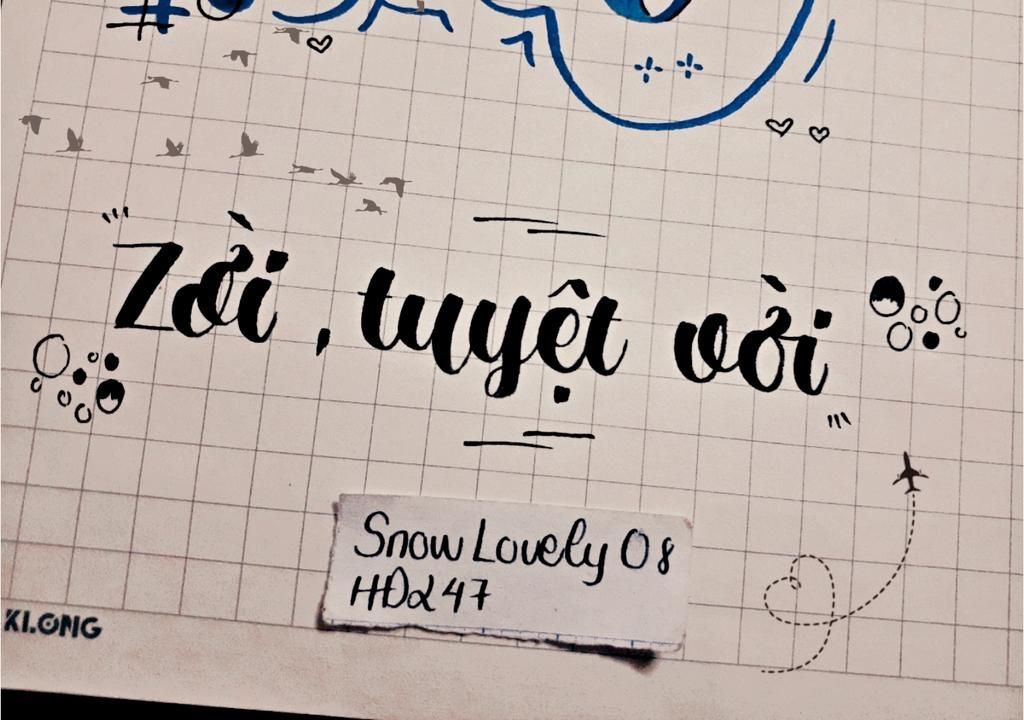 "Zời , tuyệt vời"
Snow Lovely 08
HĐ247
KLONG